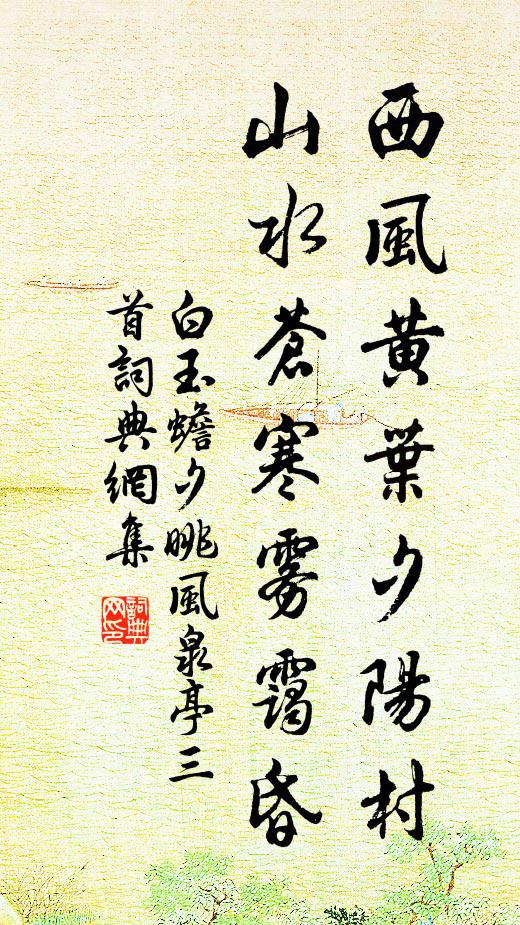 西風黃葉夕陽村
山水蒼寒雾靄昏
白玉蟾夕眺風泉亭三
首詞典網集
詞典网印